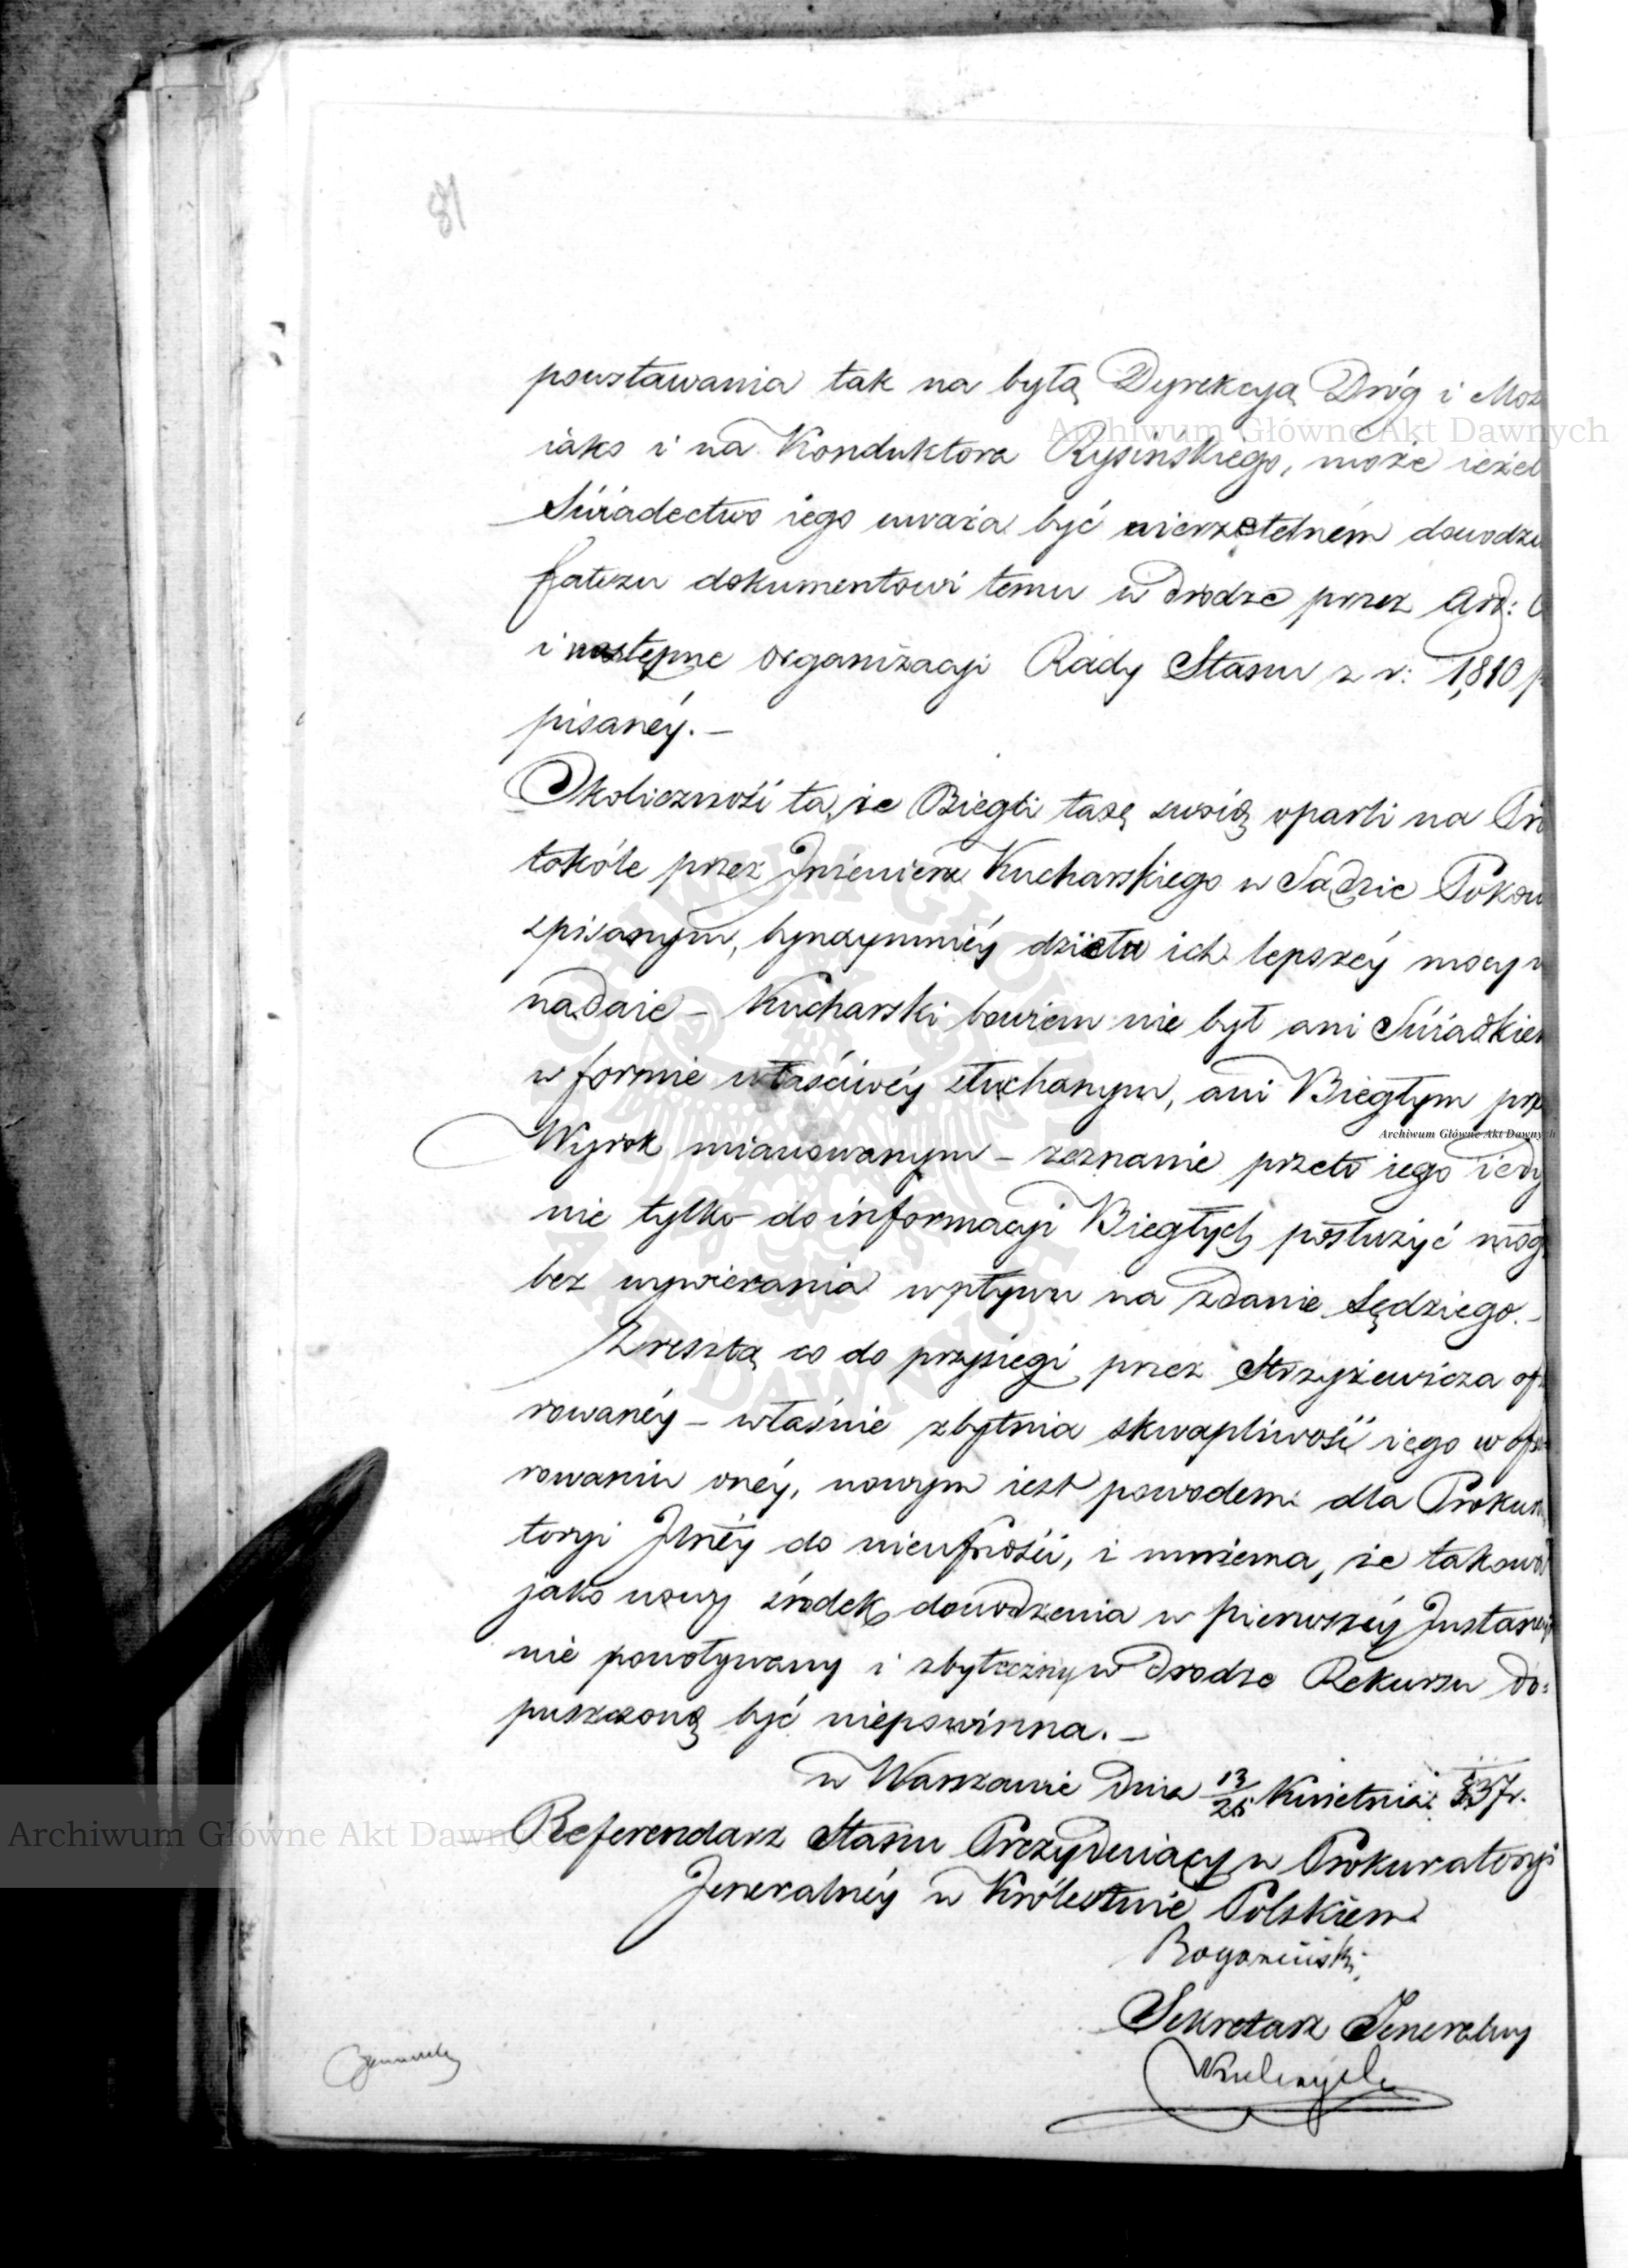 81
powstawania tak na byłą Dyrekcyą Dróg i Mos
iako i na Konduktora Rysińskiego, może ieżel
Świadectwo iego uważa być nierzetelném dowodze
fałszu dokumentowi temu w drodze przez Ard:
i następne organizacyi Rady Stanu z r: 1,810 p
pisanéy. –
Okoliczność ta, że Biegli taxę swoią oparli na Pro
tokóle przez Inżeniera Kucharskiego w Sądzie Pokou
spisanym, bynaymniéy dziełu ich lepszéy mocy n
nadaie – Kucharski bowiem nie był ani Świadkiem
w formie właściwéy słuchanym, ani Biegłym prze
Wyrok mianowanym – zeznanie przeto iego iedy
nie tylko do informacyi Biegłych posłużyć mog
bez wywierania wpływu na zdanie Sędziego. –
Zresztą co do przysięgi przez Strzyżewicza ofia
rowanéy – właśnie zbytnia skwapliwość iego w ofia
rowaniu onéy, nowym iest powodem dla Prokura
toryi Jlnéy do nieufności, i mniema, że takowa
jako nowy środek dowodzenia w pierwszéy Instancyi
nie powoływany i zbyteczny w drodze Rekursu do=
puszczoną być niepowinna. –
w Warszawie dnia 13/25 Kwietnia 837 r.
Referendarz Stanu Prezyduiący w Prokuratoryi
Jeneralnéy w Królestwie Polskiem
Sekretarz Jeneralny
Archiwum Główne Akt Dawnych
Archiwum Główne Akt Dawnych
Archiwum Główne Akt Dawnych
ARCHIWUM GŁÓWNE AKT DAWNYCH